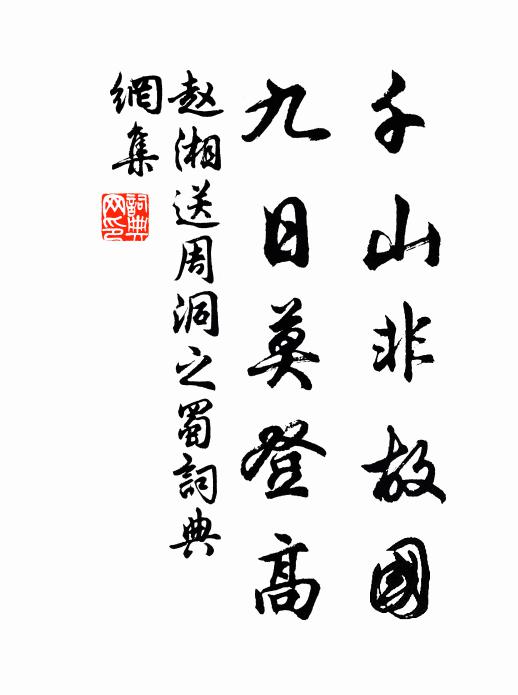 千山非故國
九日莫登高
赵湘送周洞之蜀詞典
網集
詞典网印